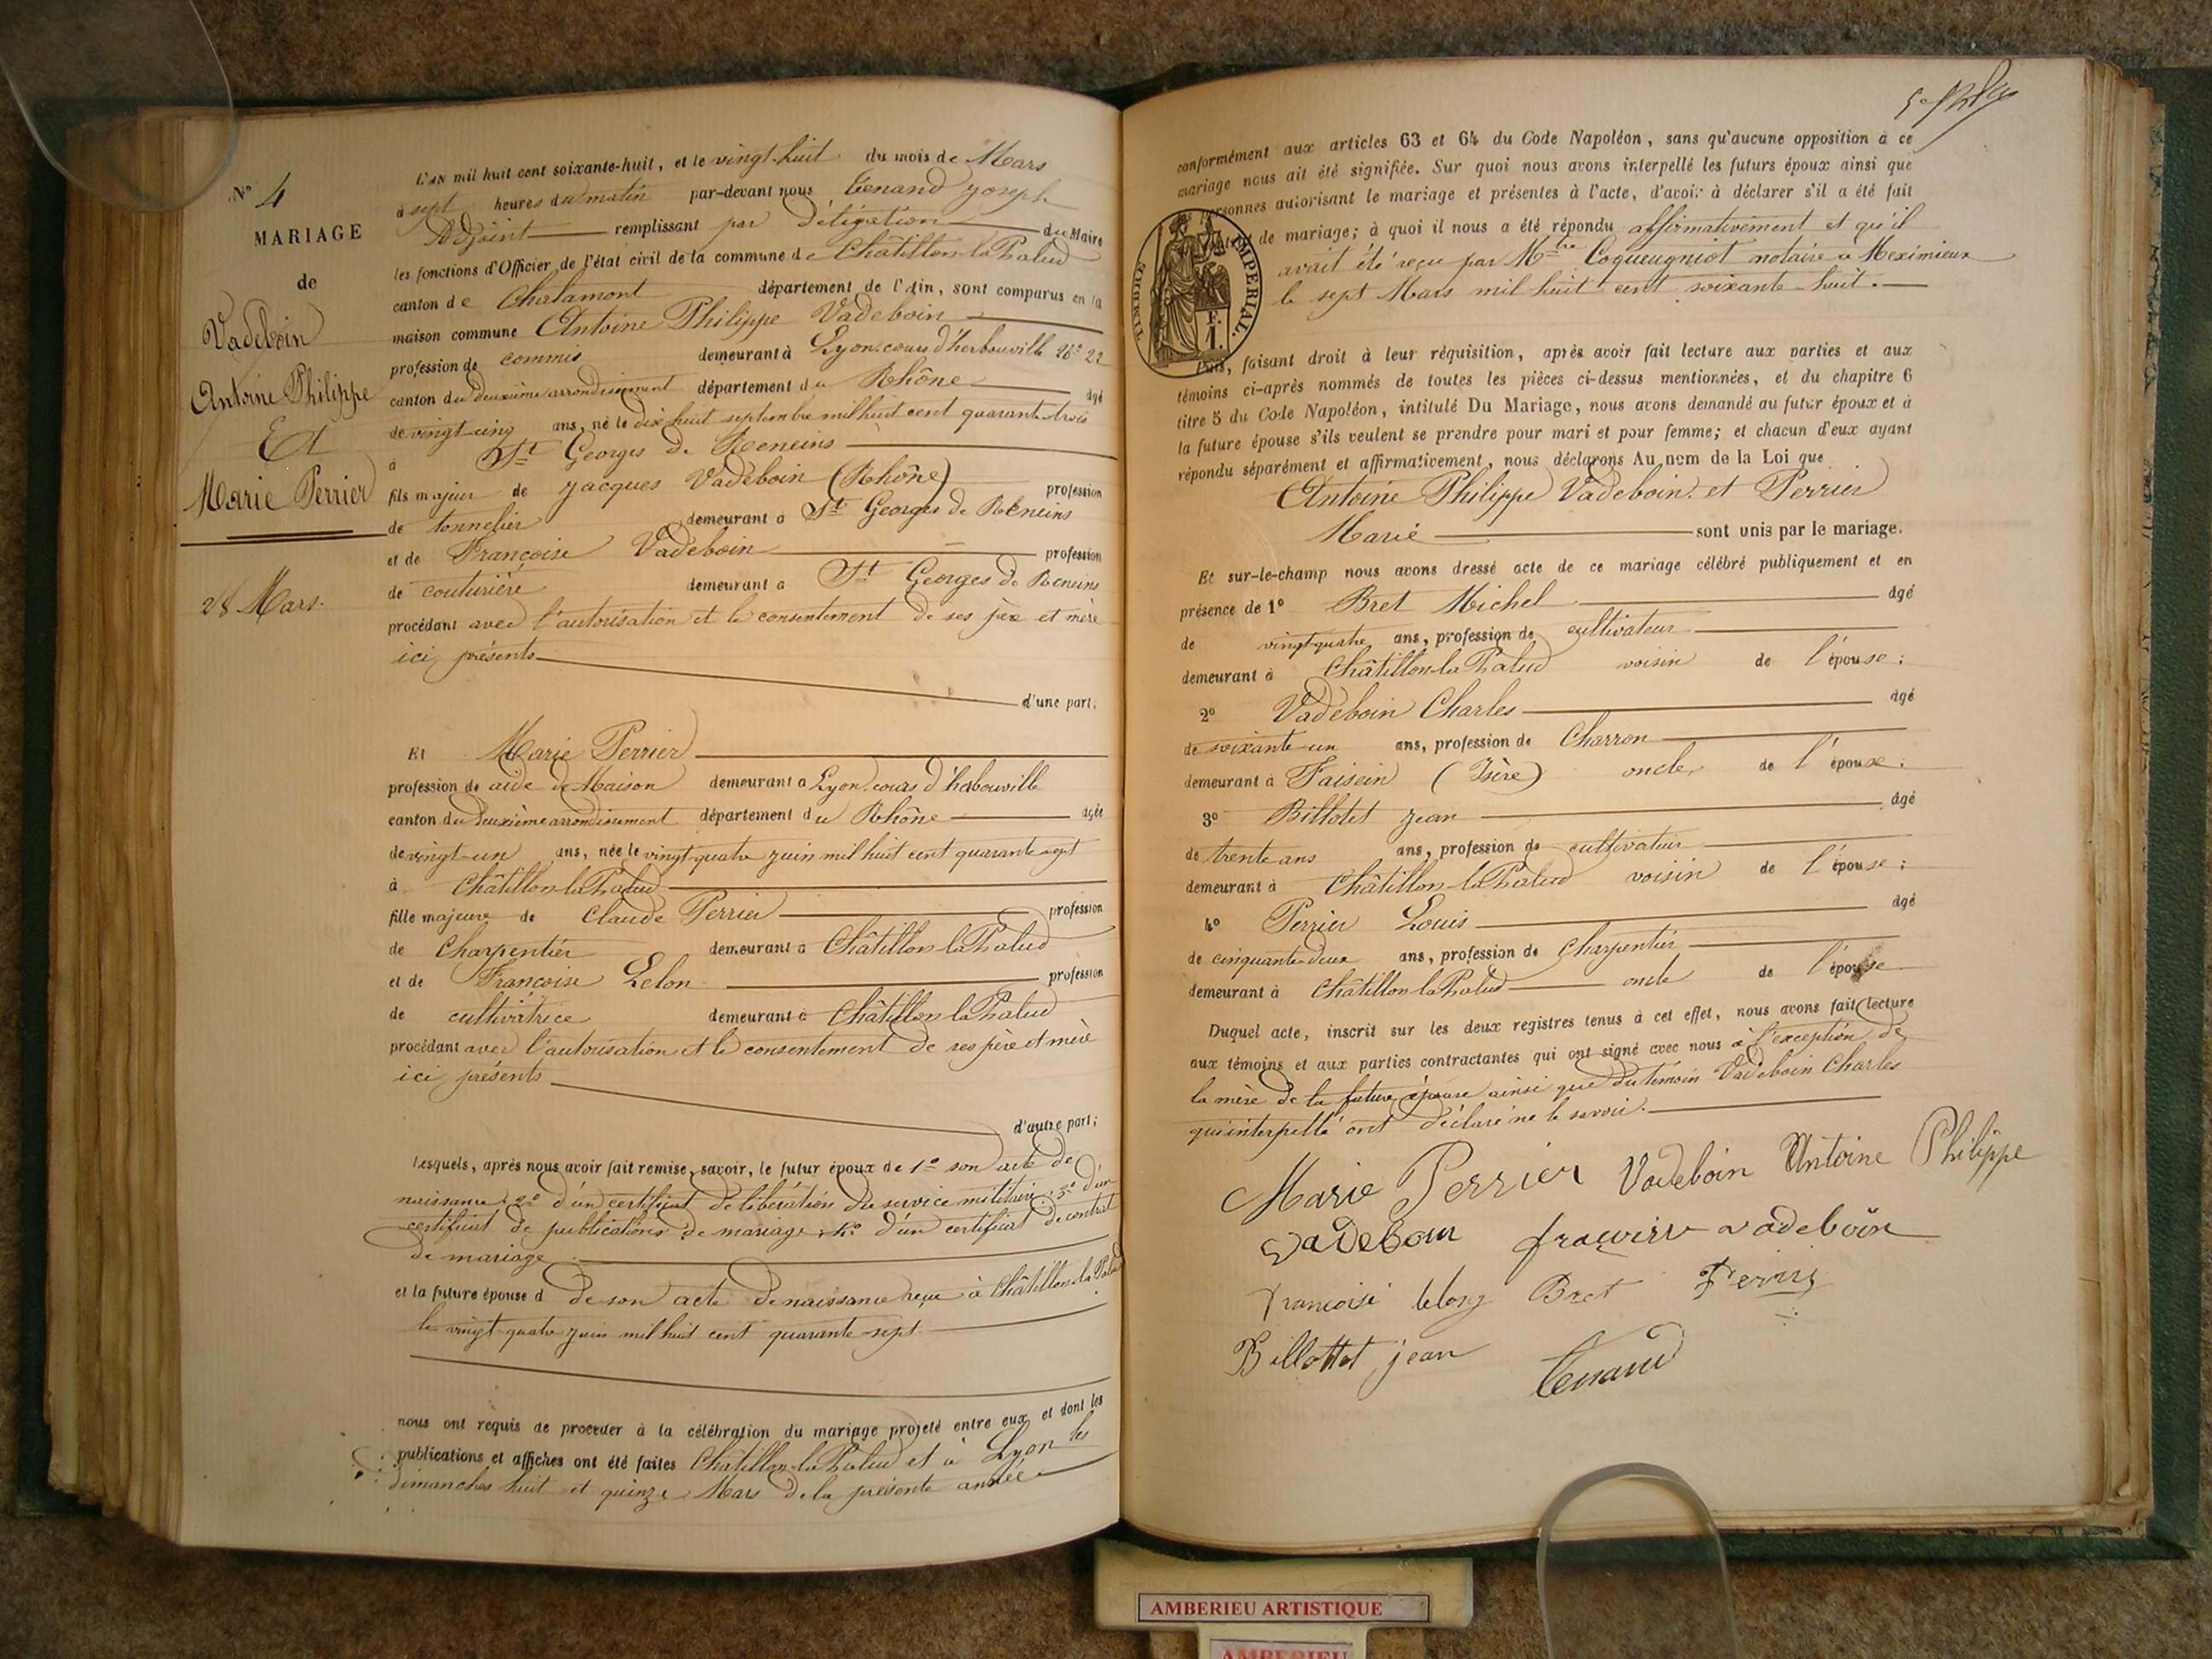 N° 4
MARIAGE
de
Vadeboin
Antoine Philippe
Et
Marie Perrier
28 Mars.
L'AN mil huit cent soixante-huit, et le vingt-huit du mois de Mars
à sept heures du matin par-devant nous Tenand Joseph
Adjoint remplissant par délégation du Maire
les fonctions d'Officier de l'état civil de la commune de Châtillon-la-Palud
canton de Chalamont département de l'Ain, sont comparus en la
maison commune Antoine Philippe Vadeboin
profession de commis demeurant à Lyon cours d'herbouville 22
canton du deuxième arrondissement département du Rhône âgé
de vingt-cinq ans, né le dix huit septembre mil huit cent quarante-trois
à St Georges de Reneins
fils majeur de Jacques Vadeboin (Rhône) profession
de tonnelier demeurant à St Georges de Reneins
et de Françoise Vadeboin profession
de couturière demeurant à St Georges de Reneins
procédant avec l'autorisation et le consentement de ses père et mère
ici présents
d'une part;
Et Marie Perrier
profession de aide de Maison demeurant à Lyon cours d'herbouville
canton du deuxième arrondissement département du Rhône âgée
de vingt-un ans, née le vingt-quatre juin mil huit cent quarante sept
à Châtillon-la-Palud
fille majeure de Claude Perrier profession
de Charpentier demeurant à Châtillon-la-Palud
et de Françoise Lelon profession
de cultivatrice demeurant à Châtillon-la-Palud
procédant avec l'autorisation et le consentement de ses père et mère
ici présents
d'autre part;
Lesquels, après nous avoir fait remise, savoir, le futur époux de 1° son acte de
naissance; 2° d'un certificat de libération du service militaire; 3° d'un
certificat de publications de mariage; 4° d'un certificat de contrat
de mariage
et la future épouse d de son acte de naissance reçu à Châtillon-la-Palud
le vingt-quatre juin mil huit cent quarante-sept.
nous ont requis de procéder à la célébration du mariage projeté entre eux, et dont les
publications et affiches ont été faites Châtillon-la-Palud et à Lyon les
dimanches huit et quinze Mars de la présente année
conformément aux articles 63 et 64 du Code Napoléon, sans qu'aucune opposition à ce
mariage nous ait été signifiée. Sur quoi nous avons interpellé les futurs époux ainsi que
les personnes autorisant le mariage et présentes à l'acte, d'avoir à déclarer s'il a été fait
contrat de mariage; à quoi il nous a été répondu affirmativement et qu'il
avait été reçu par Mtre Coqueugniot notaire à Meximieux
le sept Mars mil huit cent soixante-huit.
TIMBRE IMPERIAL.
F.
1.
Puis, faisant droit à leur réquisition, après avoir fait lecture aux parties et aux
témoins ci-après nommés de toutes les pièces ci-dessus mentionnées, et du chapitre 6
titre 5 du Code Napoléon, intitulé Du Mariage, nous avons demandé au futur époux et à
la future épouse s'ils veulent se prendre pour mari et pour femme; et chacun d'eux ayant
répondu séparément et affirmativement, nous déclarons Au nom de la Loi que
Antoine Philippe Vadeboin et Perrier
Marie sont unis par le mariage.
Et sur-le-champ nous avons dressé acte de ce mariage célébré publiquement et en
présence de 1° Bret Michel âgé
de vingt-quatre ans, profession de cultivateur
demeurant à Châtillon-la-Palud voisin de l'épouse;
2° Vadeboin Charles âgé
de soixante-un ans, profession de Charron
demeurant à Faisein (Isère) oncle de l'épouse;
3° Billotet Jean âgé
de trente ans ans, profession de cultivateur
demeurant à Châtillon-la-Palud voisin de l'épouse;
4° Perrier Louis âgé
de cinquante-deux ans, profession de Charpentier
demeurant à Châtillon-la-Palud oncle de l'épouse
Duquel acte, inscrit sur les deux registres tenus à cet effet, nous avons fait lecture
aux témoins et aux parties contractantes qui ont signé avec nous à l'exception de
la mère de la future épouse ainsi que du témoin Vadeboin Charles
qui interpellé ont déclaré ne le savoir.
Marie Perrier Vadeboin Antoine Philippe
Vadeboin françoise vadeboin
françoise lelong Bret Perrier
Billottet jean Tenand
AMBERIEU ARTISTIQUE
AMBERIEU